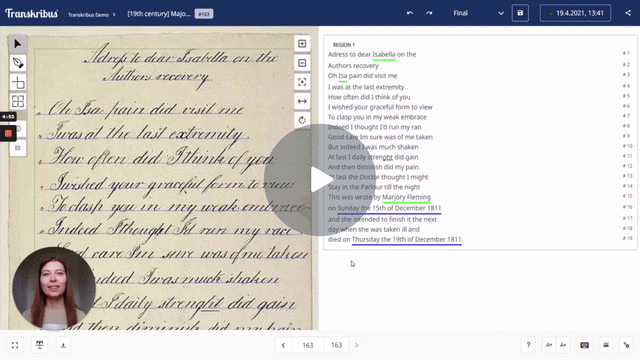 Transkribus
Transkribus Demo > [19th century] Majo... #163
Final
19.4.2021, 13:41
Adress to dear Isabella on the
Authors recovery
Oh Isa pain did visit me
I was at the last extremity
How often did I think of you
I wished your graceful form to view
To clasp you in my weak embrace
Indeed I thought I'd run my race
Good care I'm sure was of me taken
indeed I was much shaken
I daily strenght did gain
then diminish did my pain
4:53
REGION 1
Adress to dear Isabella on the #1
Authors recovery #2
Oh Isa pain did visit me #3
I was at the last extremity #4
How often did I think of you #5
I wished your graceful form to view #6
To clasp you in my weak embrace #7
Indeed I thought I'd run my ran #8
Good care Im sure was of me taken #9
But indeed I was much shaken #10
At last I daily strenght did gain #11
And then diminish did my pain. #12
At last the Doctor thought I might #13
Stay in the Parlour till the night #14
This was wrote by Marjory Fleming #15
on Sunday the 15th of December 1811 #16
and she intended to finish it the next #17
day when she was taken ill and #18
died on Thursday the 19th of December 1811. #19
163 163
? A+ A-